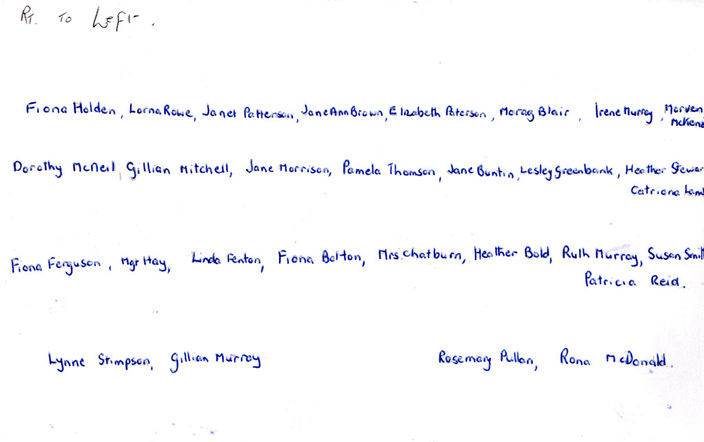 Rt. To Left.
Fiona Holden, Lorna Rowe, Janet Patterson, Jane Ann Brown, Elizabeth Paterson, Morag Blair, Irene Murray, Morven
McKenz
Dorothy McNeil, Gillian Mitchell, Jane Morrison, Pamela Thomson, Jane Buntin, Lesley Greenbank, Heather Stewar
Catriona Lam
Fiona Ferguson, Mgr Hay, Linda Fenton, Fiona Bolton, Mrs Chatburn, Heather Bold, Ruth Murray, Susan Smit
Patricia Reid.
Lynne Stimpson, Gillian Murray Rosemary Pullan, Rona McDonald.